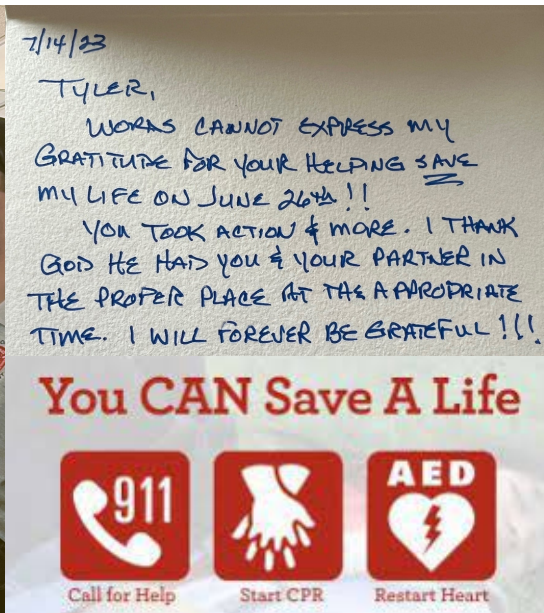 7/14/23
TYLER,
WORDS CANNOT EXPRESS MY
GRATITUDE FOR YOUR HELPING SAVE
MY LIFE ON JUNE 26th!!
YOU TOOK ACTION & MORE. I THANK
GOD HE HAD YOU & YOUR PARTNER IN
THE PROPER PLACE AT THE APPROPRIATE
TIME. I WILL FOREVER BE GRATEFUL!!!
You CAN Save A Life
911
AED
Call for Help
Start CPR
Restart Heart